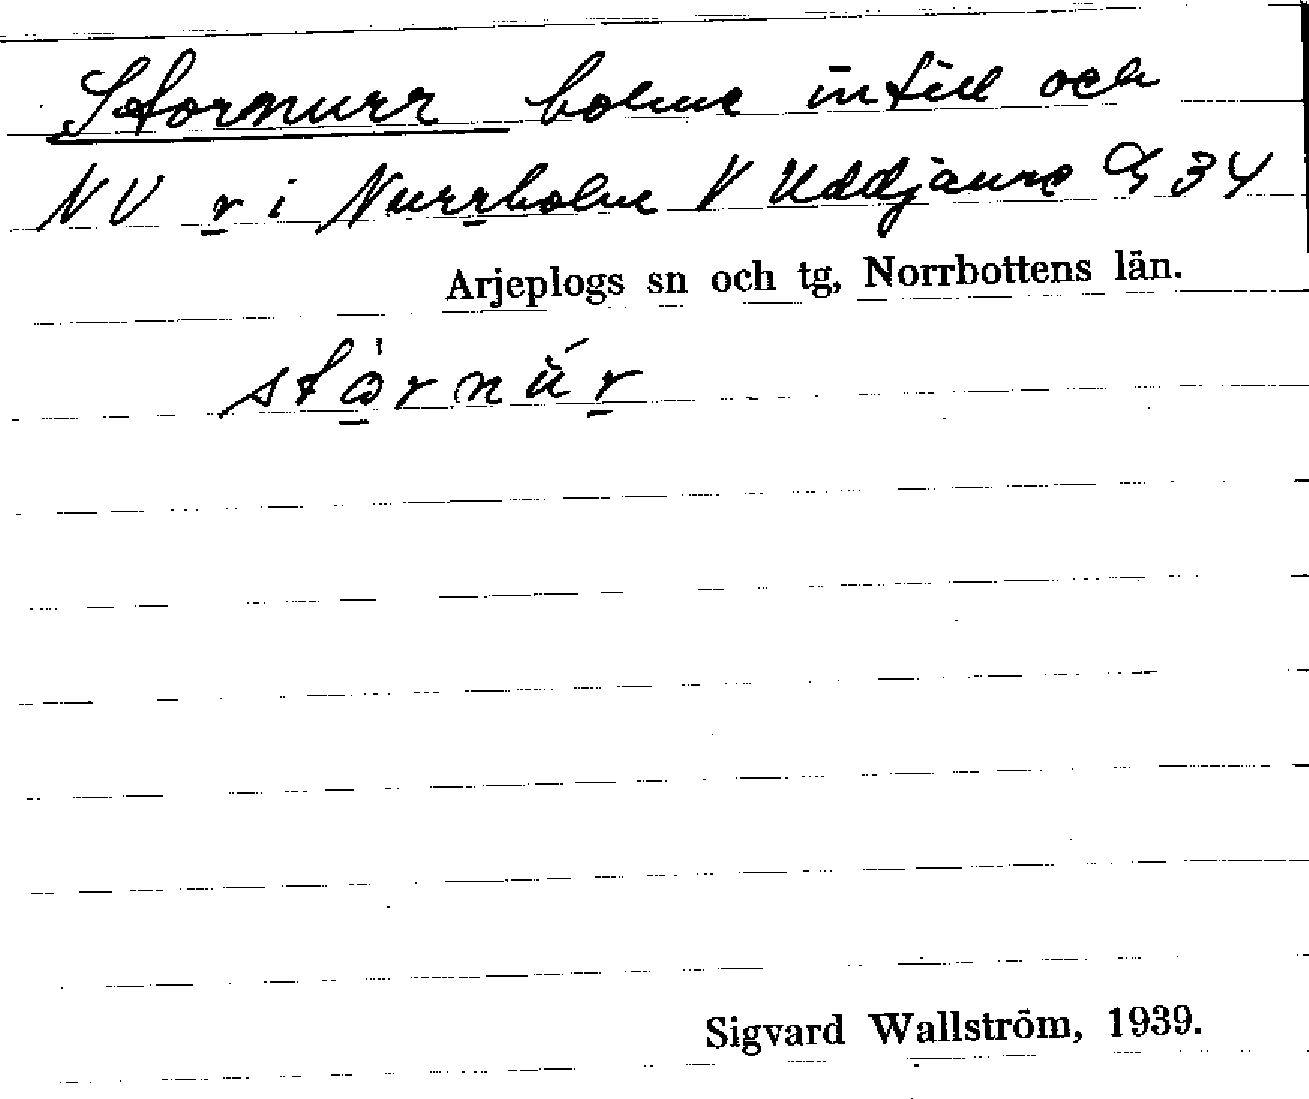 Stornurr holme intill och
NV r i Nurrholme V Uddjaure G 34
Arjeplogs sn och tg, Norrbottens län.
Sigvard Wallström, 1939.